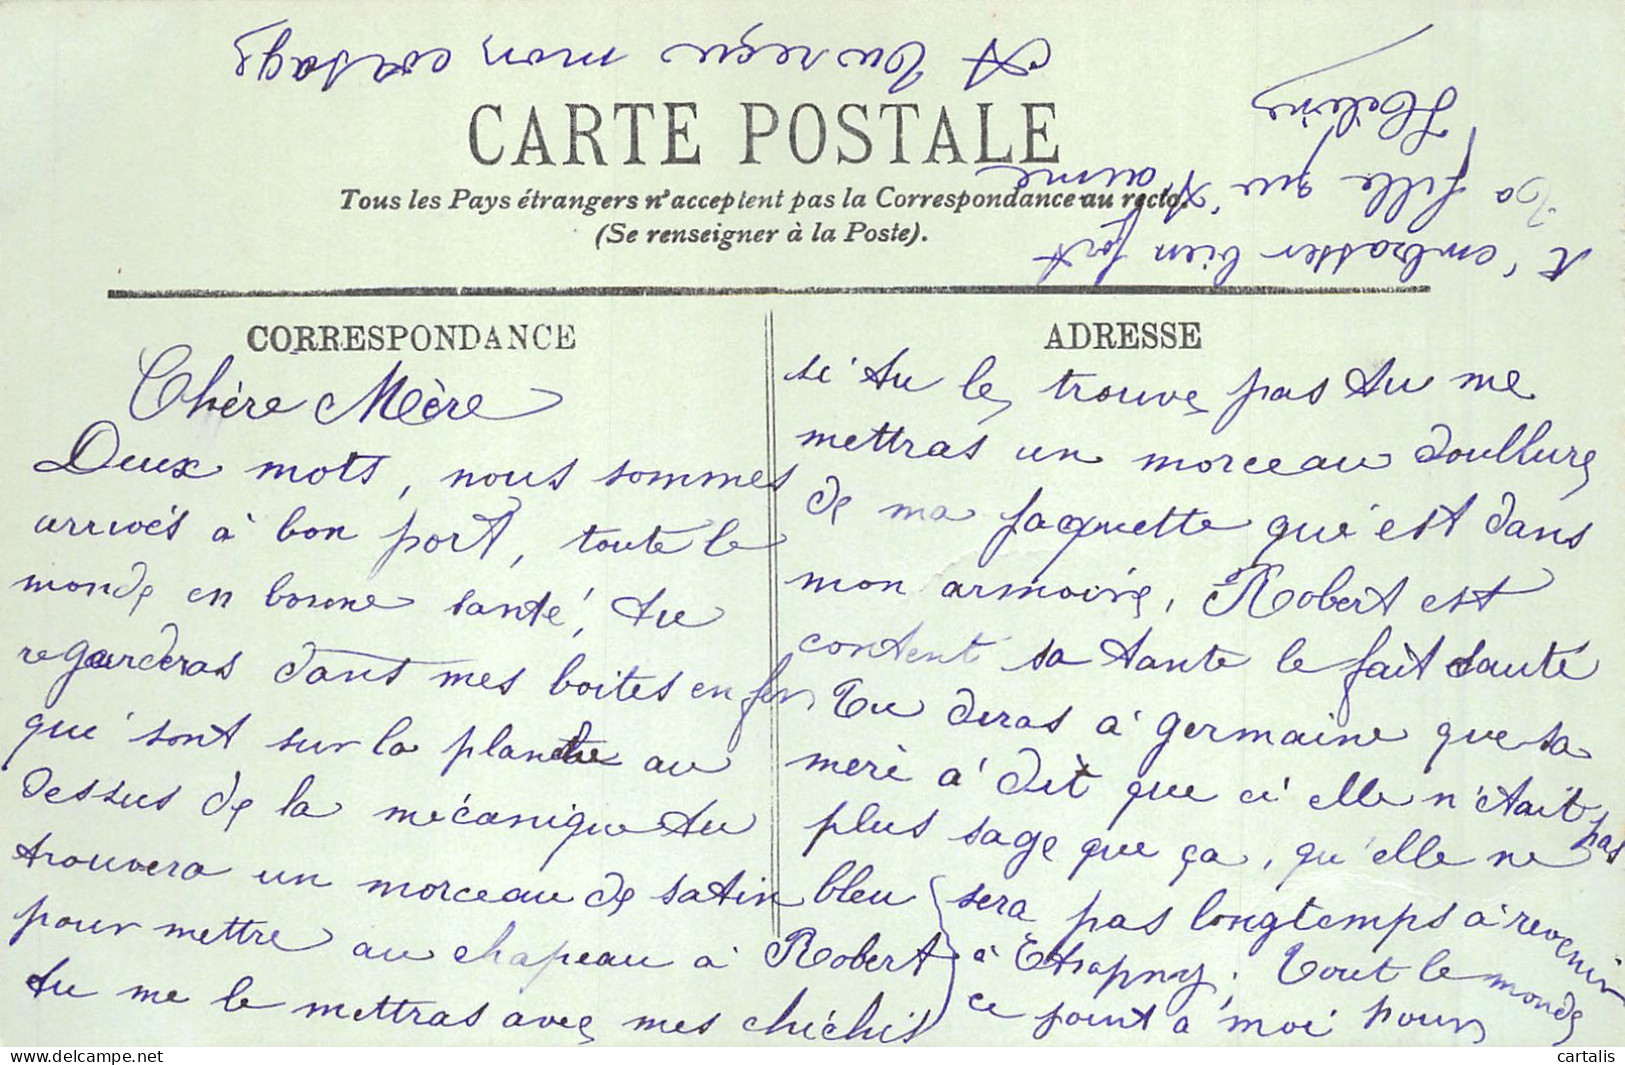 CARTE POSTALE
Tous les Pays étrangers n'acceptent pas la Correspondance au recto.
(Se renseigner à la Poste).
CORRESPONDANCE
Chère Mère
Deux mots, nous sommes
arrivés à bon port, toute le
monde en bonne santé, tu
regarderas dans mes boites en fer
qui sont sur la planche au
dessus de la mécanique tu
trouvera un morceau de satin bleu
pour mettre au chapeau à Robert
tu me le mettras avec mes chichis
ADRESSE
si tu le trouve pas tu me
mettras un morceau doullure
de ma jaquette qui est dans
mon armoire, Robert est
content sa tante le fait sauté
Tu diras à Germaine que sa
meri à dit que ci elle n'était pas
plus sage que ça, qu'elle ne
sera pas longtemps à revenir
à Etrapny; Tout le monde
ce joint à moi pour
t'embrasser bien fort
Ta fille qui t'aime
Hélène
A tu reçu mon corsage
cartalis